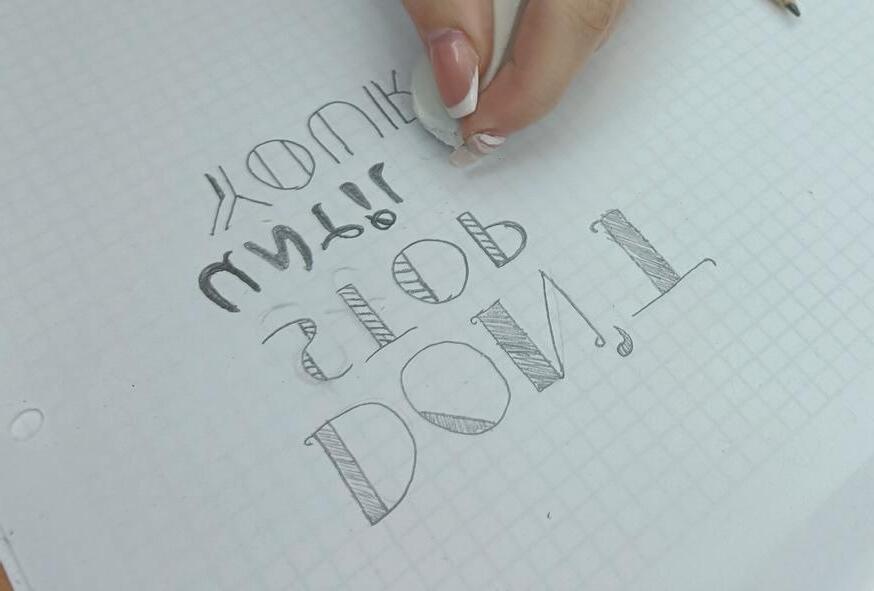 DON'T
STOP
until
YOUR